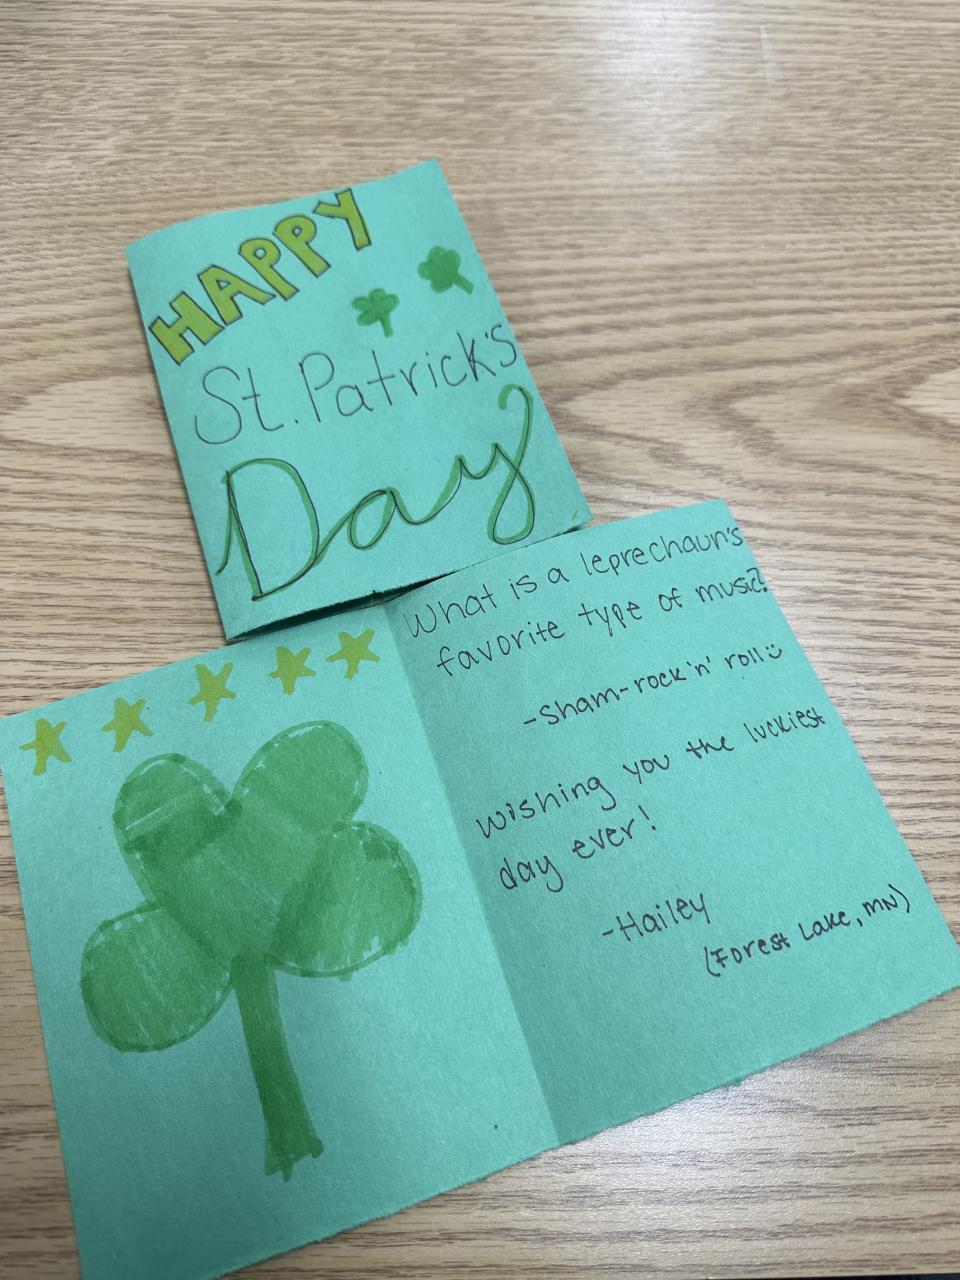 HAPPY
St. Patrick's
Day
What is a leprechaun's
favorite type of music?
-Sham-rock 'n' roll :)
wishing you the luckiest
day ever!
-Hailey
(Forest Lake, MN)